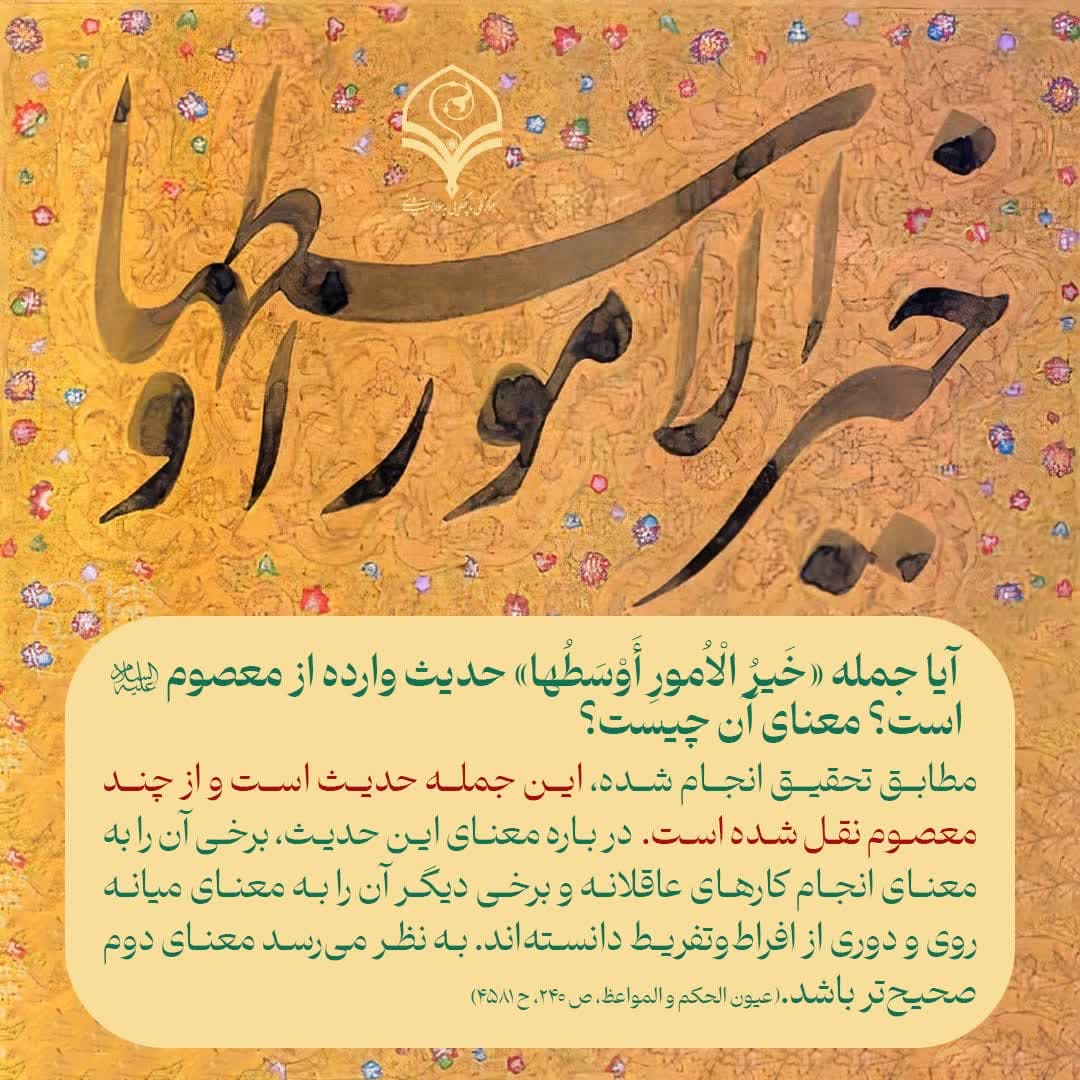 خیر الامور اوسطها
آیا جمله «خَیرُ الْاُمورِ أَوْسَطُها» حدیث وارده از معصوم علیه‌السلام
است؟ معنای آن چیست؟
مطابق تحقیق انجام شده، این جمله حدیث است و از چند
معصوم نقل شده است. در باره معنای این حدیث، برخی آن را به
معنای انجام کارهای عاقلانه و برخی دیگر آن را به معنای میانه
روی و دوری از افراط وتفریط دانسته‌اند. به نظر می‌رسد معنای دوم
صحیح‌تر باشد.(عیون الحکم و المواعظ، ص ۲۴۰، ح ۴۵۸۱)